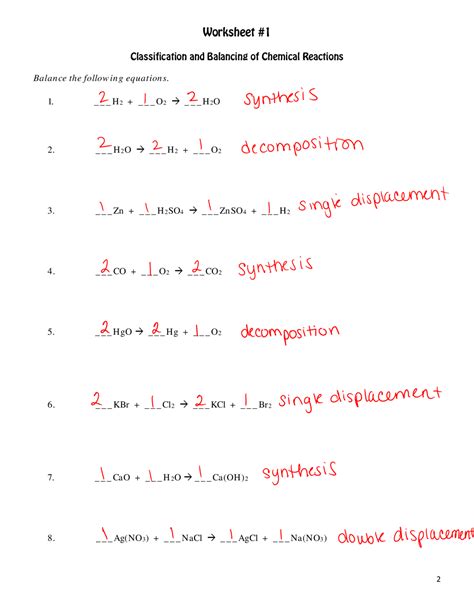 Worksheet #1
Classification and Balancing of Chemical Reactions
Balance the following equations.
1. 2 H2 + 1 O2 → 2 H2O synthesis
2. 2 H2O → 2 H2 + 1 O2 decomposition
3. 1 Zn + 1 H2SO4 → 1 ZnSO4 + 1 H2 single displacement
4. 2 CO + 1 O2 → 2 CO2 synthesis
5. 2 HgO → 2 Hg + 1 O2 decomposition
6. 2 KBr + 1 Cl2 → 2 KCl + 1 Br2 single displacement
7. 1 CaO + 1 H2O → 1 Ca(OH)2 synthesis
8. 1 Ag(NO3) + 1 NaCl → 1 AgCl + 1 Na(NO3) double displacement
2